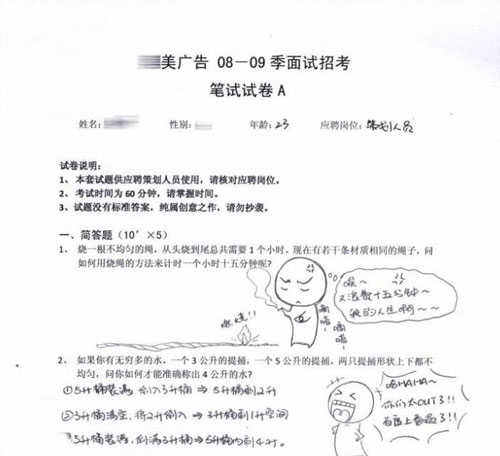 美广告 08－09 季面试招考
笔试试卷 A
姓名： 性别： 年龄：23 应聘岗位：策划人员
试卷说明：
1、 本套试题供应聘策划人员使用，请核对应聘岗位。
2、 考试时间为 60 分钟，请掌握时间。
3、 试题没有标准答案，纯属创意之作，请勿抄袭。
一、简答题（10'×5）
1、 烧一根不均匀的绳，从头烧到尾总共需要 1 个小时。现在有若干条材质相同的绳子，问
如何用烧绳的方法来计时一个小时十五分钟呢？
唉～
又浪费十五分钟～
我的人生啊～～
嘀嗒
嘀嗒
燃烧！！
2、 如果你有无穷多的水，一个 3 公升的提捅，一个 5 公升的提捅，两只提捅形状上下都不
均匀，问你如何才能准确称出 4 公升的水？
①5升桶装满，倒入3升桶 ⇒ 5升桶剩2升
②3升桶清空，将2升倒入 ⇒ 3升桶剩1升空间
5升桶装满，倒满3升桶⇒5升桶内剩4升.
哈HAHA～
你们太OUT了!!
百度上看过了!!